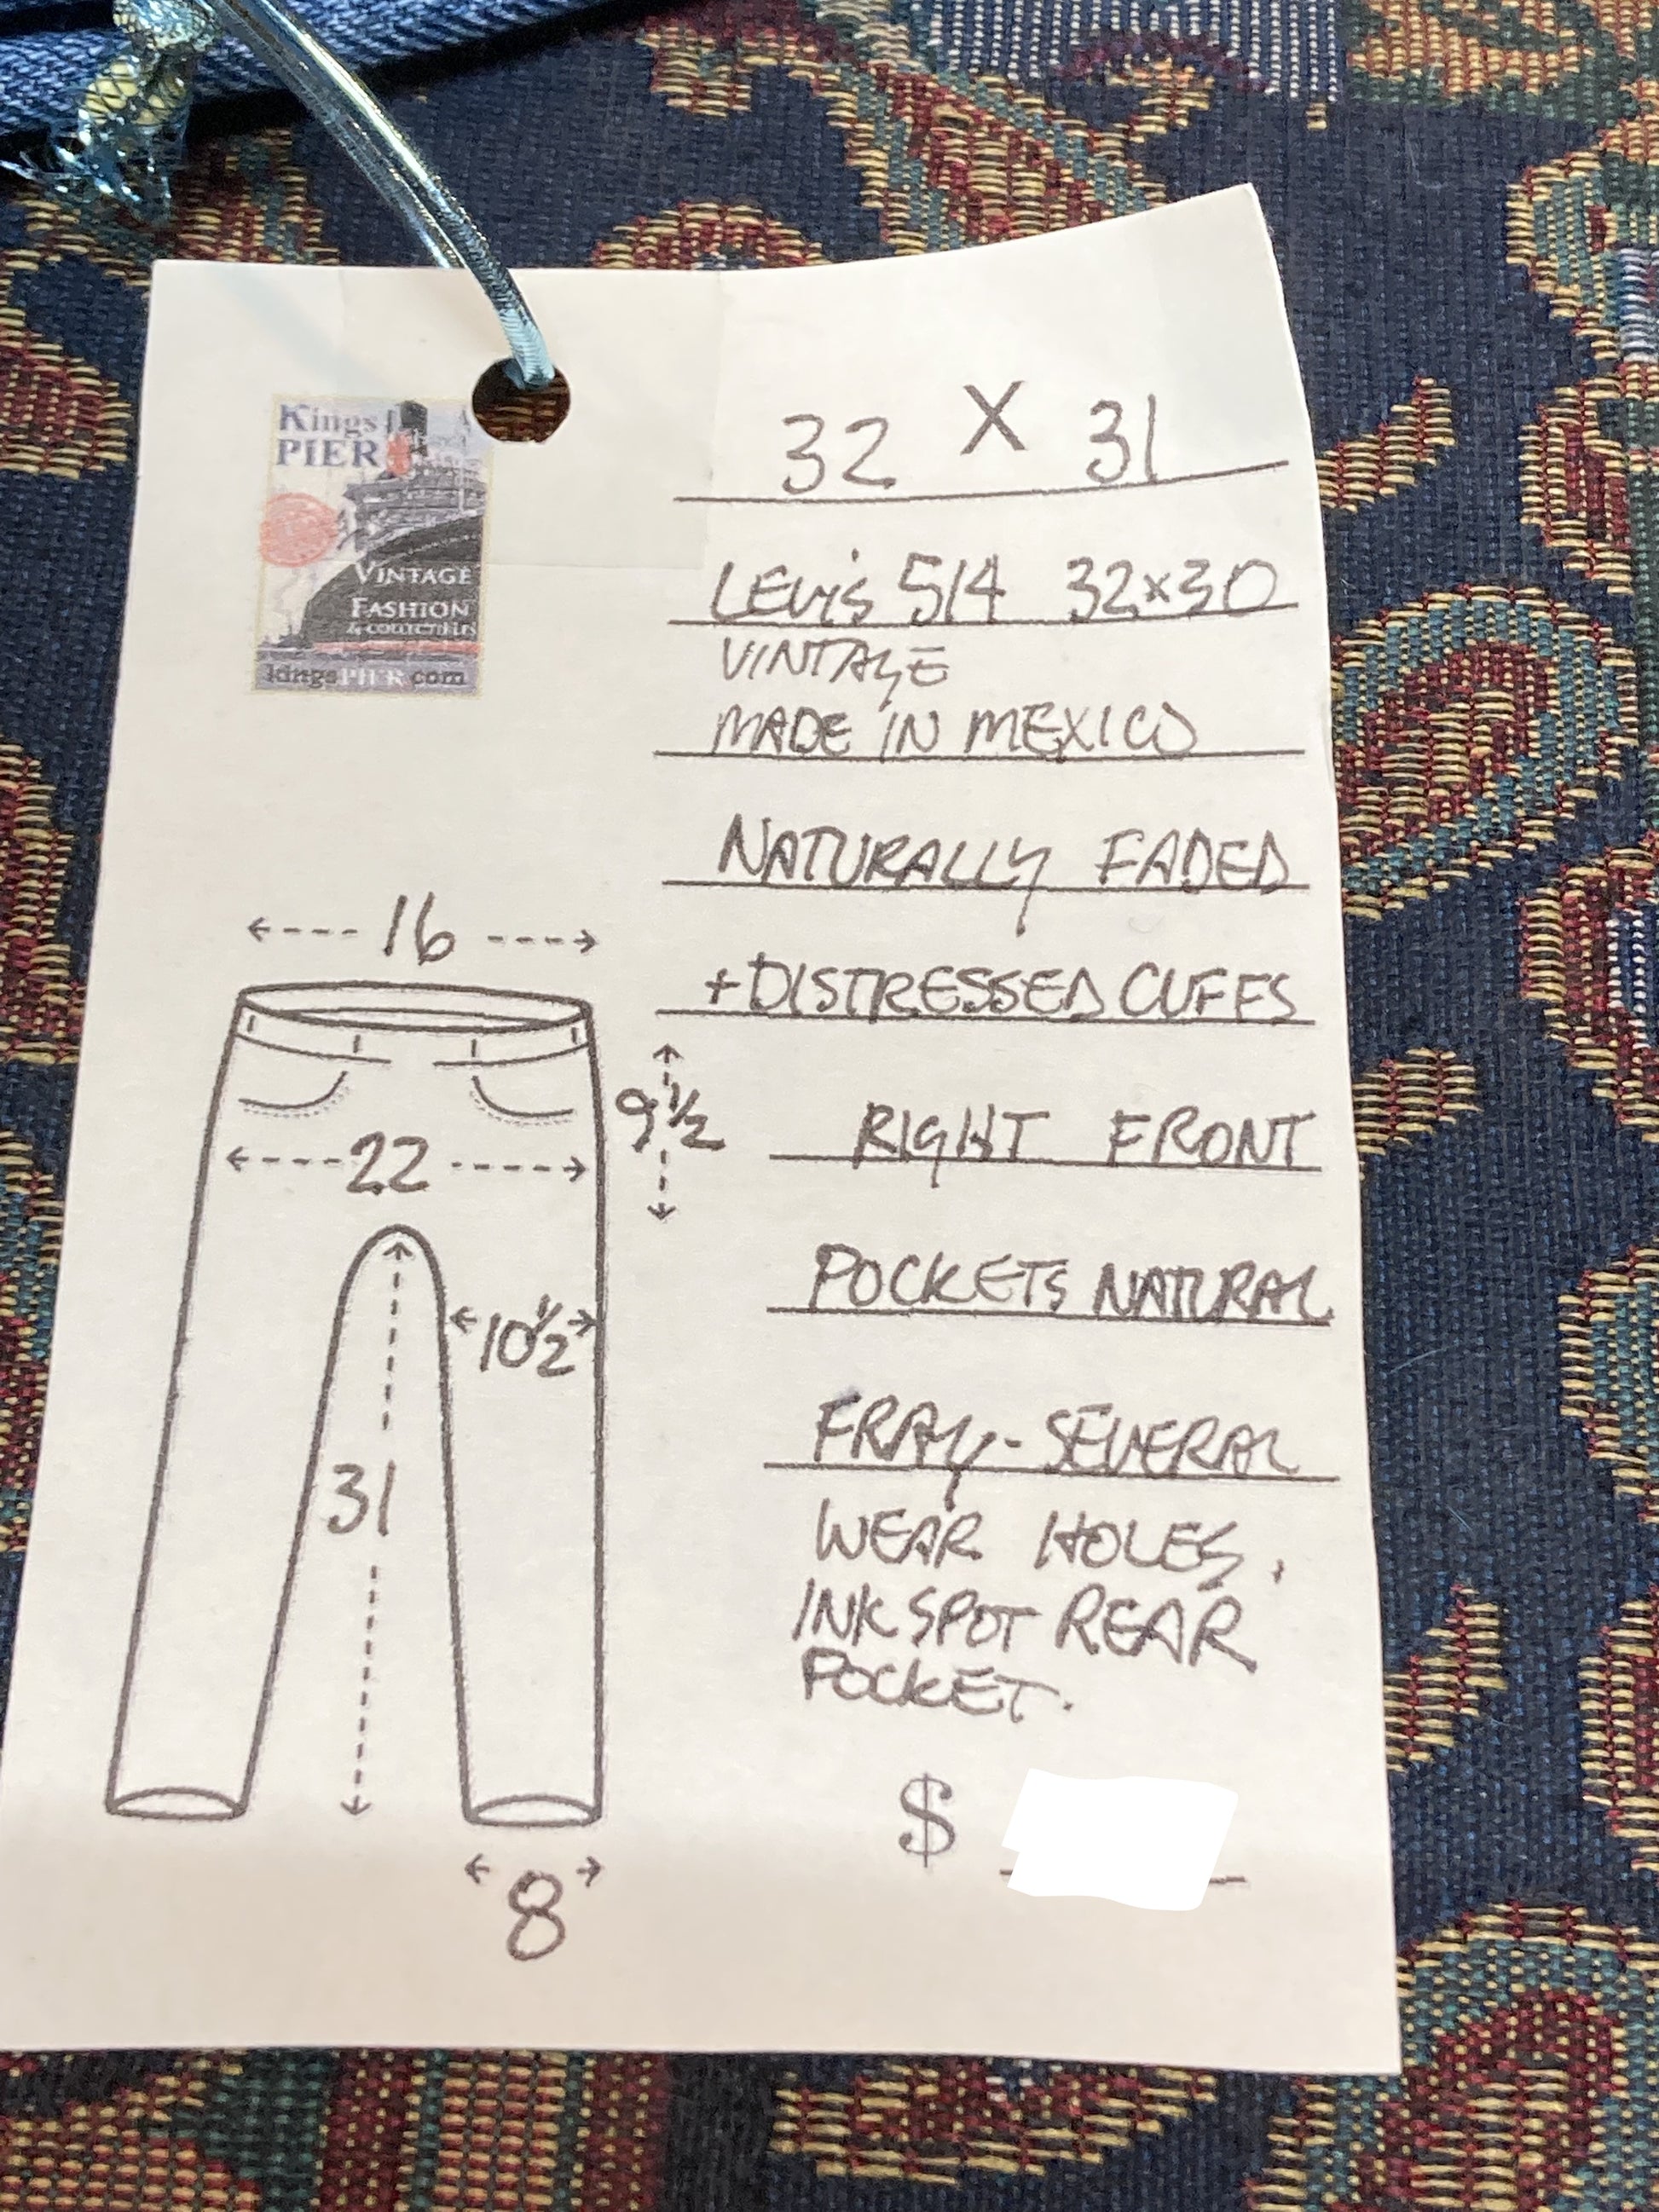 Kings
PIER
VINTAGE
FASHION
& COLLECTIBLES
kingsPIER.com
32 X 31
LEVI'S 514 32x30
VINTAGE
MADE IN MEXICO
NATURALLY FADED
+ DISTRESSED CUFFS
RIGHT FRONT
POCKETS NATURAL
FRAY - SEVERAL
WEAR HOLES.
INK SPOT REAR
POCKET.
$
16
9 1/2
22
10 1/2
31
8